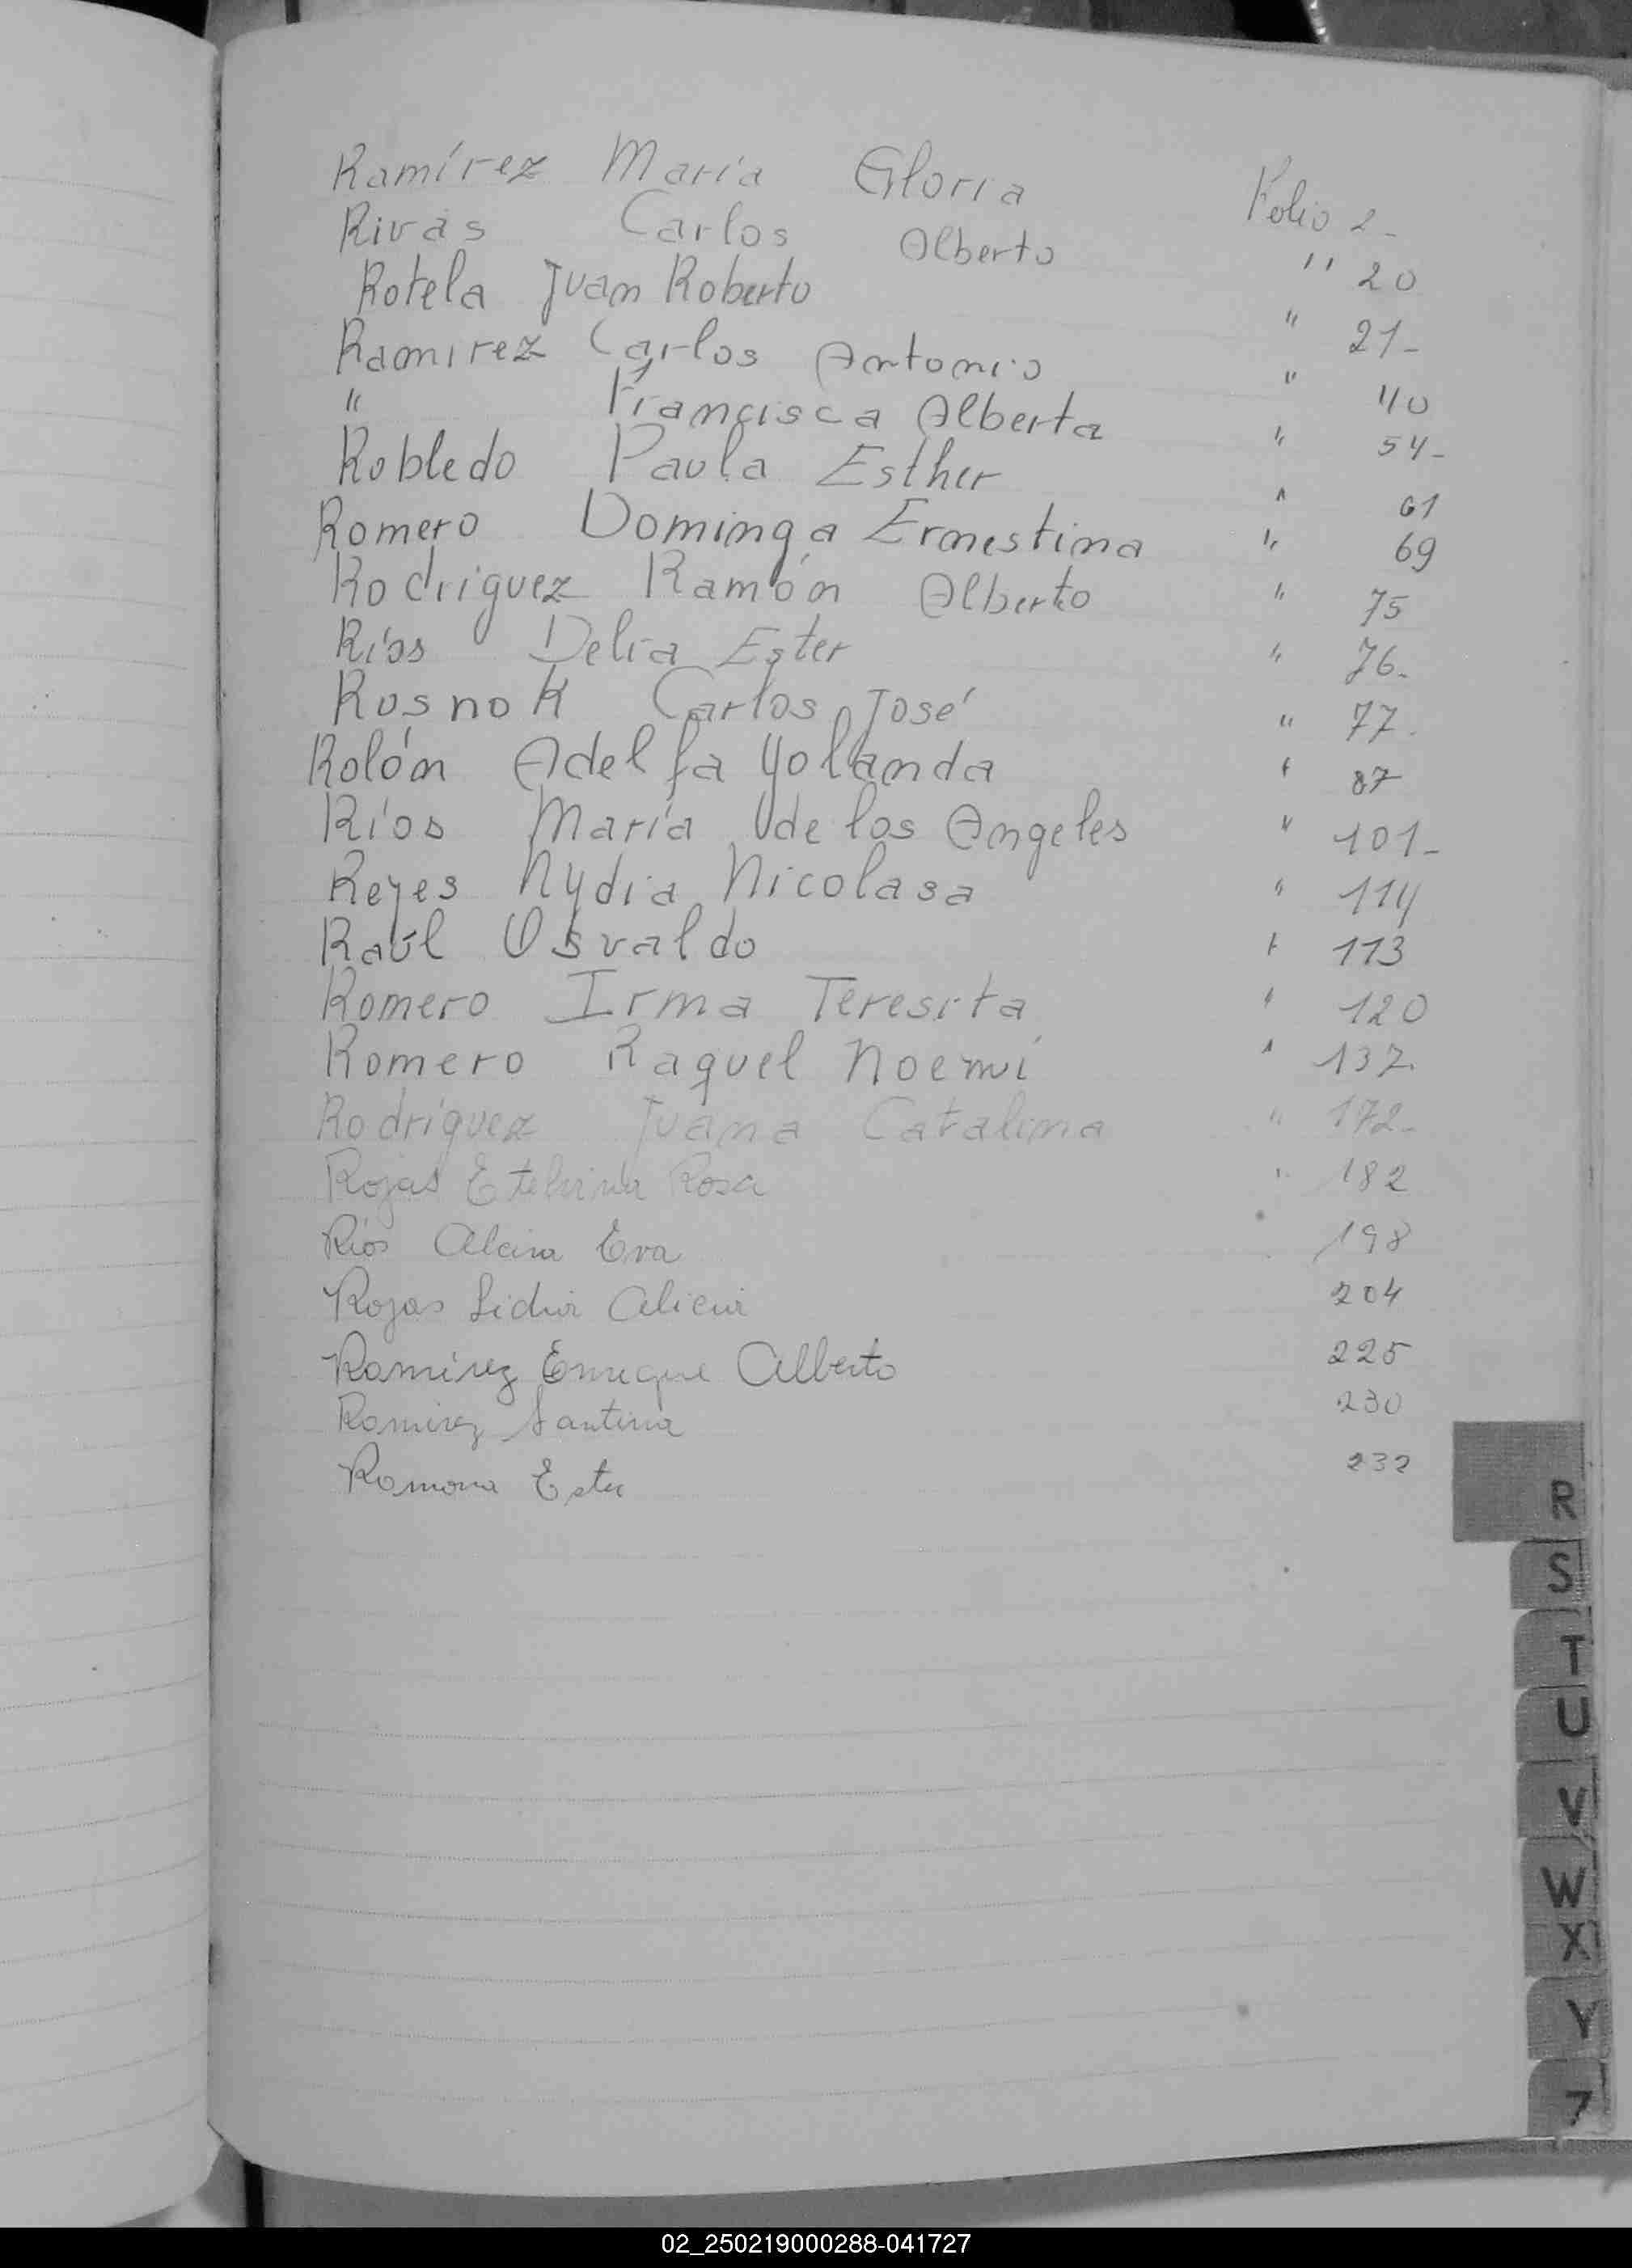 Ramírez María Gloria Folio 2-
Rivas Carlos Alberto '' 20
Rotela Juan Roberto " 21-
Ramirez Carlos Antonio " 40
" Francisca Alberta " 54-
Robledo Paula Esther " 61
Romero Dominga Ernestina " 69
Rodriguez Ramón Alberto " 75
Ríos Delia Ester " 76-
Rosnok Carlos José " 77.
Rolón Adelfa Yolanda " 87
Ríos María de los Angeles " 101-
Reyes Nydia Nicolasa " 114
Raúl Osvaldo " 113
Romero Irma Teresita " 120
Romero Raquel Noemí " 137.
Rodríguez Juana Catalina " 172-
Rojas Etelvina Rosa " 182
Ríos Alcira Eva 198
Rojas Lidia Alicia 204
Ramírez Enrique Alberto 225
Ramirez Santina 230
Ramona Ester 232
R
S
T
U
V
W
X
Y
Z
02_250219000288-041727